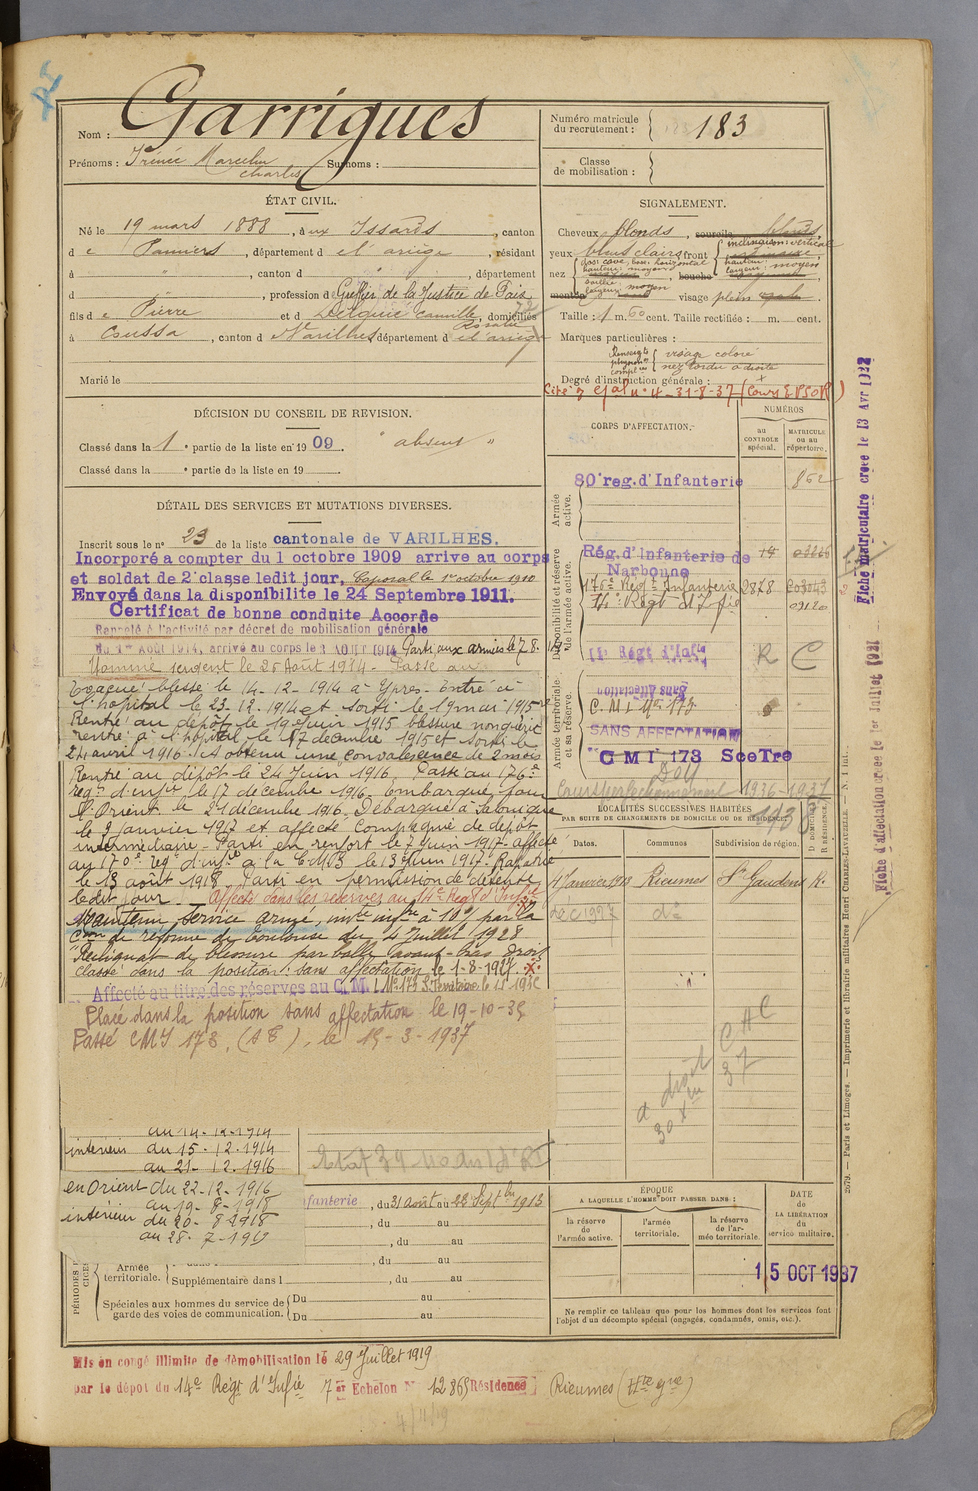 Nom : Garrigues
Prénoms : Irénée Marcelin Surnoms :
Charles
Numéro matricule
du recrutement : 183
Classe
de mobilisation :
ÉTAT CIVIL.
Né le 19 mars 1888, à ux Issards, canton
d e Pamiers, département d e l'ariège, résidant
à " , canton d " , département
d , profession d e Greffier de la Justice de Paix
fils d e Pierre et d Delquié Camille, domiciliés
Rosalie
à Coussa, canton d Varilhes département d e l'ariège
Marié le
DÉCISION DU CONSEIL DE REVISION.
Classé dans la 1 e partie de la liste en 1909. " absent "
Classé dans la e partie de la liste en 19 .
DÉTAIL DES SERVICES ET MUTATIONS DIVERSES.
Inscrit sous le n° 23 de la liste cantonale de VARILHES.
Incorporé a compter du 1 octobre 1909 arrive au corps
et soldat de 2e classe ledit jour, Caporal le 1er octobre 1910
Envoyé dans la disponibilite le 24 Septembre 1911.
Certificat de bonne conduite Accorde
Rappelé à l'activité par décret de mobilisation générale
du 1er Août 1914, arrivé au corps le 3 AOUT 1914 Parti aux armées le 7-8-14
Nommé sergent le 26 Août 1914 - Passé au
Evacué blessé le 14-12-1914 à Ypres. Entré à
l'hôpital le 23-12-1914 et sorti le 19 mai 1915
Rentré au dépôt le 19 juin 1915 blessure non guérie
rentré à l'hôpital le 17 décembre 1915 et sorti le
24 avril 1916. A obtenu une convalescence de 2 mois
Rentré au dépôt le 24 Juin 1916. Passé au 176e
reg. d'infie le 17 décembre 1916. Embarqué pour
l'Orient le 21 décembre 1916. Débarqué à Salonique
le 9 janvier 1917 et affecté Compagnie de dépôt
intermédiaire - Parti en renfort le 7 juin 1917. affecté
au 176e reg. d'infie à la C.M.3 le 13 Juin 1917. Rapatrié
le 13 août 1918. Parti en permission de détente
ledit jour. Affecté dans les réserves au 14e Regt d'Infie
Maintenu service armé, invte infre à 10% par la
Con de réforme de Toulouse du 4 Juillet 1928
"Reliquat de blessure par balle avant-bras droit
classé dans la position: sans affectation le 1-8-1927.
Affecté au titre des réserves au C.M.I. N° 173
Placé dans la position sans affectation le 19-10-35
Passé CMI 173. (A E), le 15-3-1937
au 14-12-1914
intérieur du 15-12-1914
au 21-12-1916
en Orient du 22-12-1916
au 19-8-1918
intérieur du 20-8-1918
au 28-7-1919
fanterie , du 31 août au 22 Septbre 1913
, du au
, du au
, du au
Armée
territoriale. Supplémentaire dans l , du au
Spéciales aux hommes du service de
garde des voies de communication. Du au
Du au
SIGNALEMENT.
Cheveux blonds, sourcils blonds,
yeux bleus clairs front inclinaison: verticale
hauteur:
largeur: moyen
nez dos: cave, base: horizontale
hauteur: moyenne
saillie:
largeur: moyen
bouche
menton visage plein
Taille : 1 m. 60 cent. Taille rectifiée : m. cent.
Marques particulières :
Renseigts
physion.
complres visage coloré
nez tordu à droite
Degré d'instruction générale :
Cité à ejal n° 4-31-8-37 (Cours EPSOR)
CORPS D'AFFECTATION.
NUMÉROS
au
CONTROLE
spécial.
MATRICULE
ou au
répertoire.
Armée
active.
80e reg. d'Infanterie 862
Disponibilité et réserve
de l'armée active.
Rég. d'Infanterie de
Narbonne
176e Regt Infanterie 2878
14e Regt d'Infie 09120
14 Régt d'Infie R C
Armée territoriale
et sa réserve.
Sans Affectation
C.M.I. N° 173
SANS AFFECTATION
CMI 173 SceTre
1936-1937
1938
LOCALITÉS SUCCESSIVES HABITÉES
PAR SUITE DE CHANGEMENTS DE DOMICILE OU DE RÉSIDENCE.
Dates. Communes Subdivision de région. D. DOMICILE
R. RÉSIDENCE.
4 Janvier 1913 Rieumes St Gaudens R.
Déc 1927 d°
CAC
37
a droit
30
ÉPOQUE
A LAQUELLE L'HOMME DOIT PASSER DANS :
la réserve
de
l'armée active.
l'armée
territoriale.
la réserve
de l'ar-
mée territoriale.
DATE
de
LA LIBÉRATION
du
service militaire.
15 OCT 1937
Ne remplir ce tableau que pour les hommes dont les services font
l'objet d'un décompte spécial (engagés, condamnés, omis, etc.).
Mis en congé illimité de démobilisation le 29 Juillet 1919
par le dépot du 14e Régt d'Infie 7 er Echelon N° 12869 Résidence Rieumes (Hte Gne)
Fiche matriculaire creée le 13 Avr 1922
Fiche d'affectation creée le 1er Juillet 1921
2079. — Paris et Limoges. — Imprimerie et librairie militaires Henri CHARLES-LAVAUZELLE.